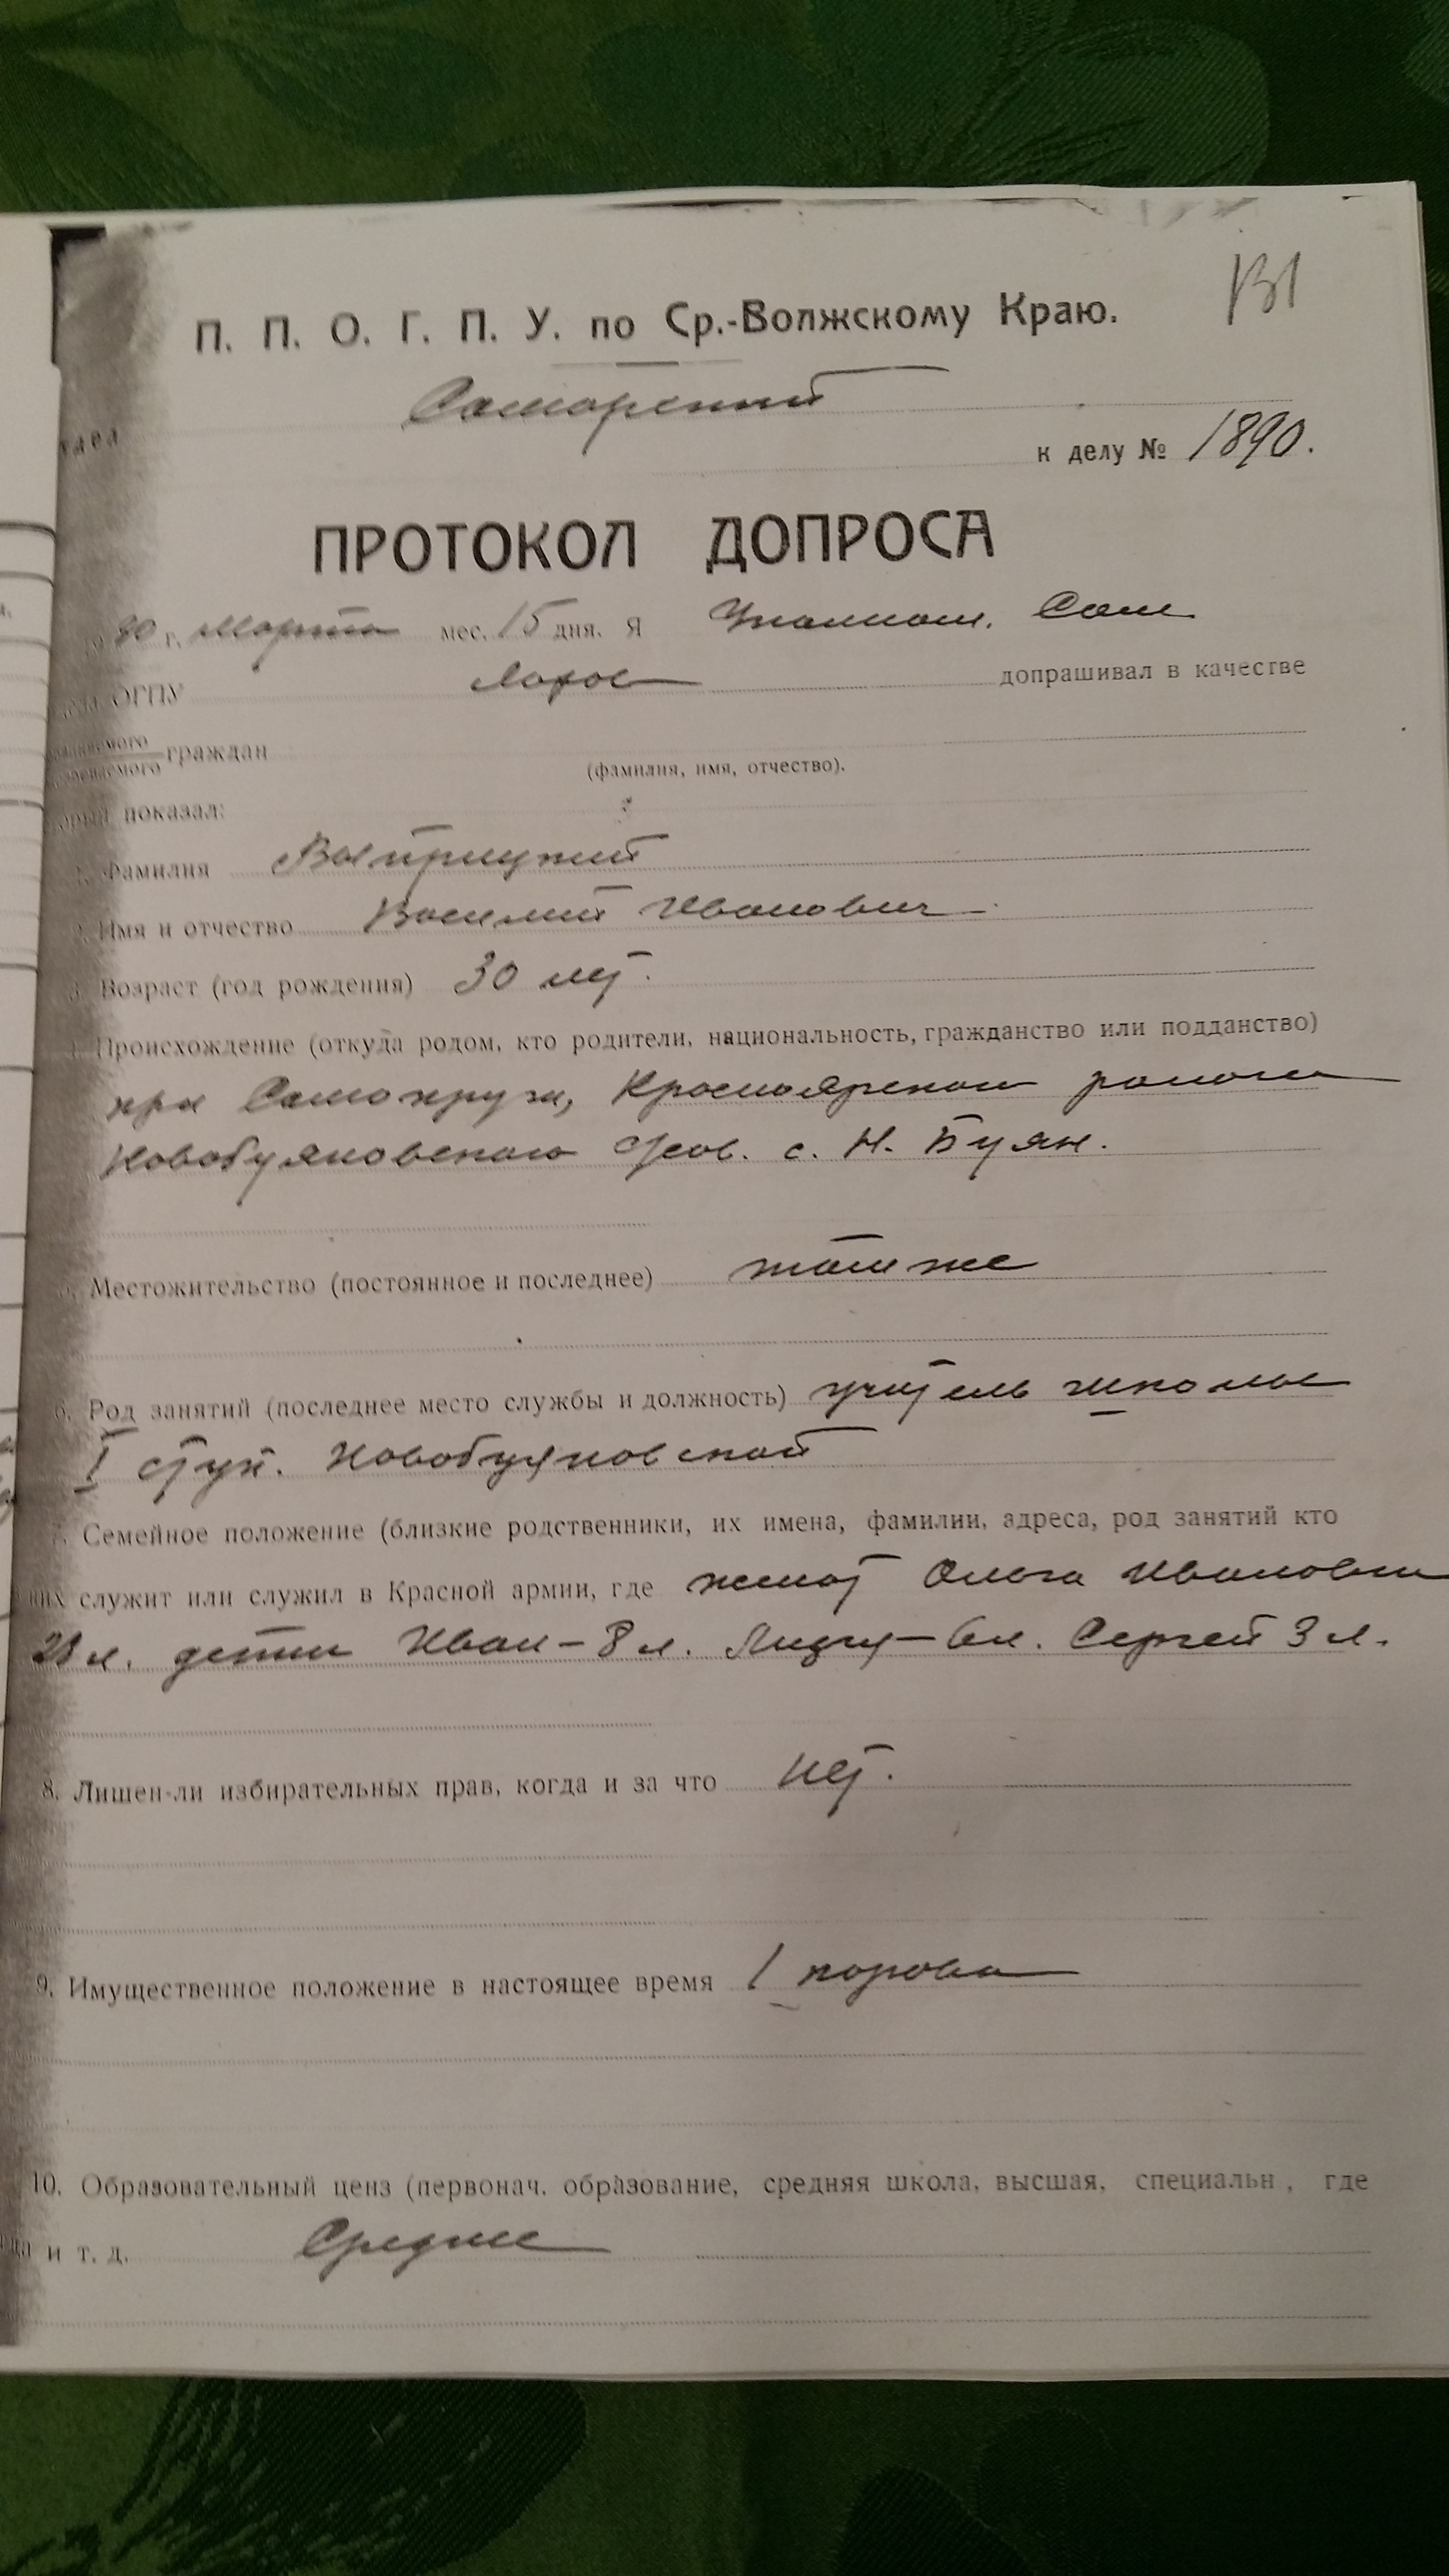 131
П. П. О. Г. П. У. по Ср.-Волжскому Краю.
Самарский
к делу № 1890.
ПРОТОКОЛ ДОПРОСА
1930 г. марта мес. 15 дня. Я Уполном. Сам
ОГПУ допрашивал в качестве
граждан
(фамилия, имя, отчество).
показал:
Фамилия Выприцкий
2. Имя и отчество Василий Иванович
3. Возраст (год рождения) 30 лет.
4. Происхождение (откуда родом, кто родители, национальность, гражданство или подданство)
Самокруги, Красноярском
Новобуяновского с. Н. Буян.
Местожительство (постоянное и последнее) там же
6. Род занятий (последнее место службы и должность) учитель школы
I ступ. Новобуяновской
7. Семейное положение (близкие родственники, их имена, фамилии, адреса, род занятий кто
них служит или служил в Красной армии, где женат Ольга Ивановна
28 л. дети Иван – 8 л. Лидия – 6 л. Сергей 3 л.
8. Лишен-ли избирательных прав, когда и за что нет.
9. Имущественное положение в настоящее время 1 корова
10. Образовательный ценз (первонач. образование, средняя школа, высшая, специальн , где
и т. д. Среднее